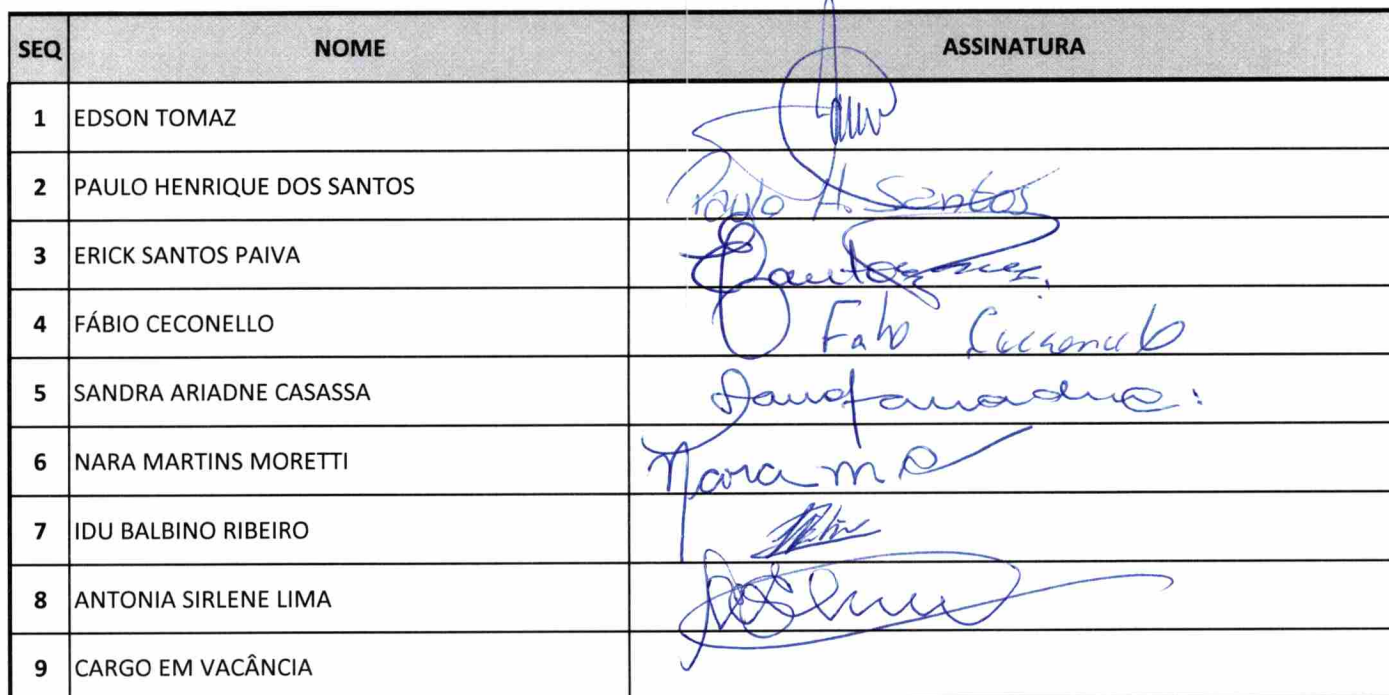 SEQ NOME ASSINATURA
1 EDSON TOMAZ
2 PAULO HENRIQUE DOS SANTOS Paulo H. Santos
3 ERICK SANTOS PAIVA
4 FÁBIO CECONELLO
5 SANDRA ARIADNE CASASSA
6 NARA MARTINS MORETTI Nara m
7 IDU BALBINO RIBEIRO
8 ANTONIA SIRLENE LIMA
9 CARGO EM VACÂNCIA